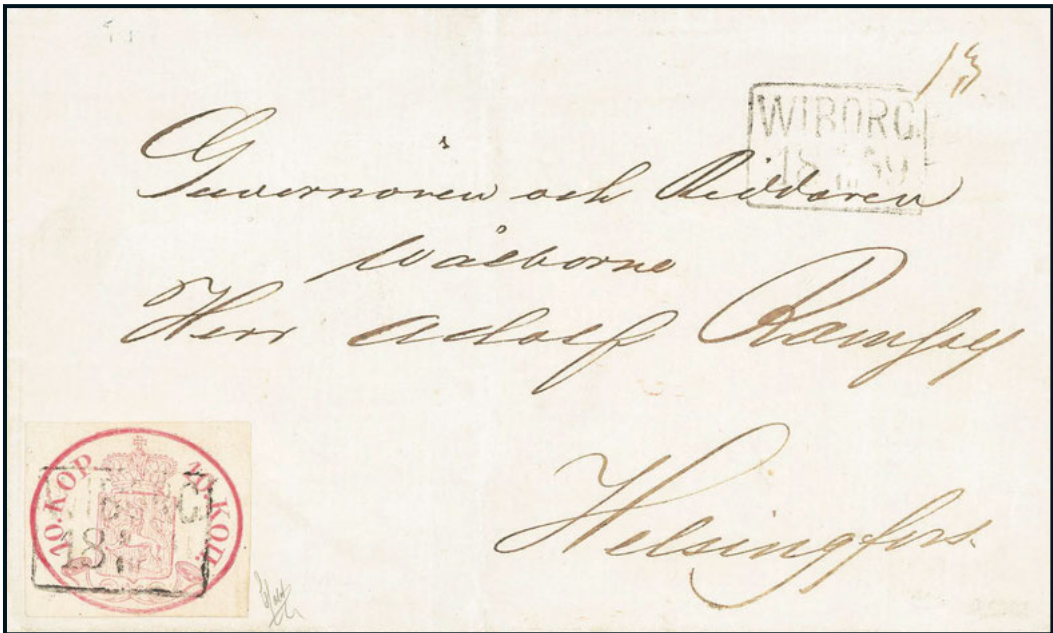 13.
WIBORG
Guvernören och Riddaren
Wälborne
Herr Adolf Ramsay
Helsingfors.
10.KOP 10.КОП.
WIBORG
18